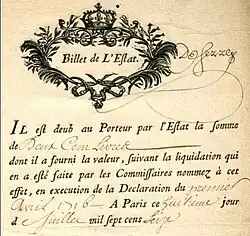 Billet de L'Estat.
IL est deub au Porteur par l'Estat la somme
de Deux Cem Livres
dont il a fourni la valeur, suivant la liquidation qui
en a esté faite par les Commissaires nommez à cet
effet, en execution de la Declaration du premier
Avril 1716 A Paris ce huitieme
jour de Juillet mil sept cens Seize